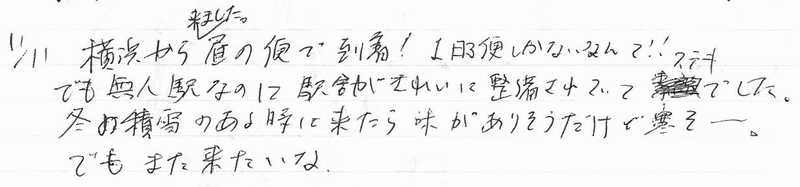 11/11 横浜から来ました。昼の便で到着！1日3便しかないなんて!!
でも無人駅なのに駅舎がきれいに整備されていてステキでした。
冬の積雪のある時に来たら味がありそうだけど寒そー。
でもまた来たいな.